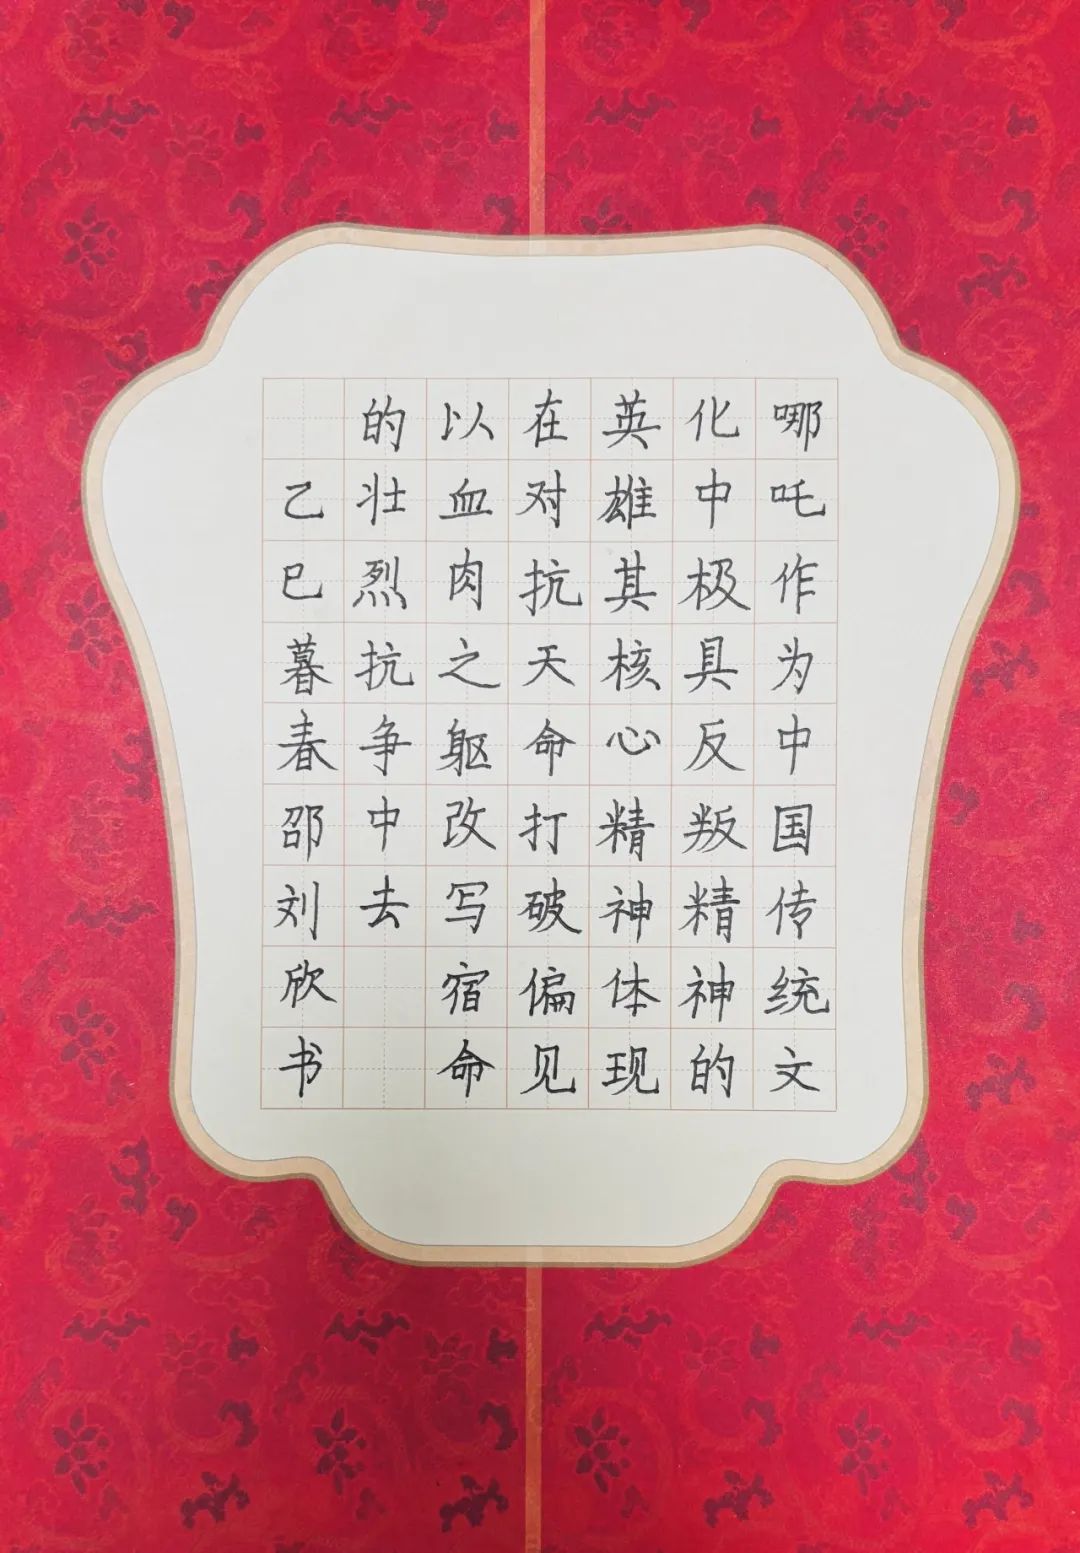 哪吒作为中国传统文
化中极具反叛精神的
英雄其核心精神体现
在对抗天命打破偏见
以血肉之躯改写宿命
的壮烈抗争中去
乙巳暮春邵刘欣书